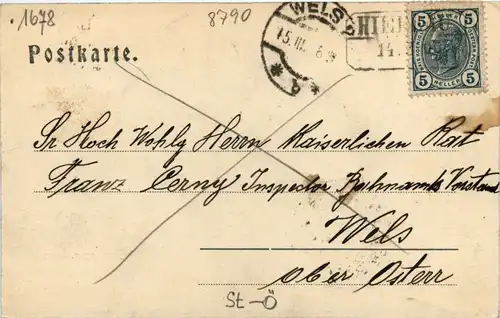 .1678
8790
WELS
15.III.
14.
5 5
5 HELLER 5
Postkarte.
Sr Hoch Wohlg Herrn Kaiserlichen Rat
Franz Cerny Inspector Bahnamts Vorstand
Wels
Ober Österr
St-Ö